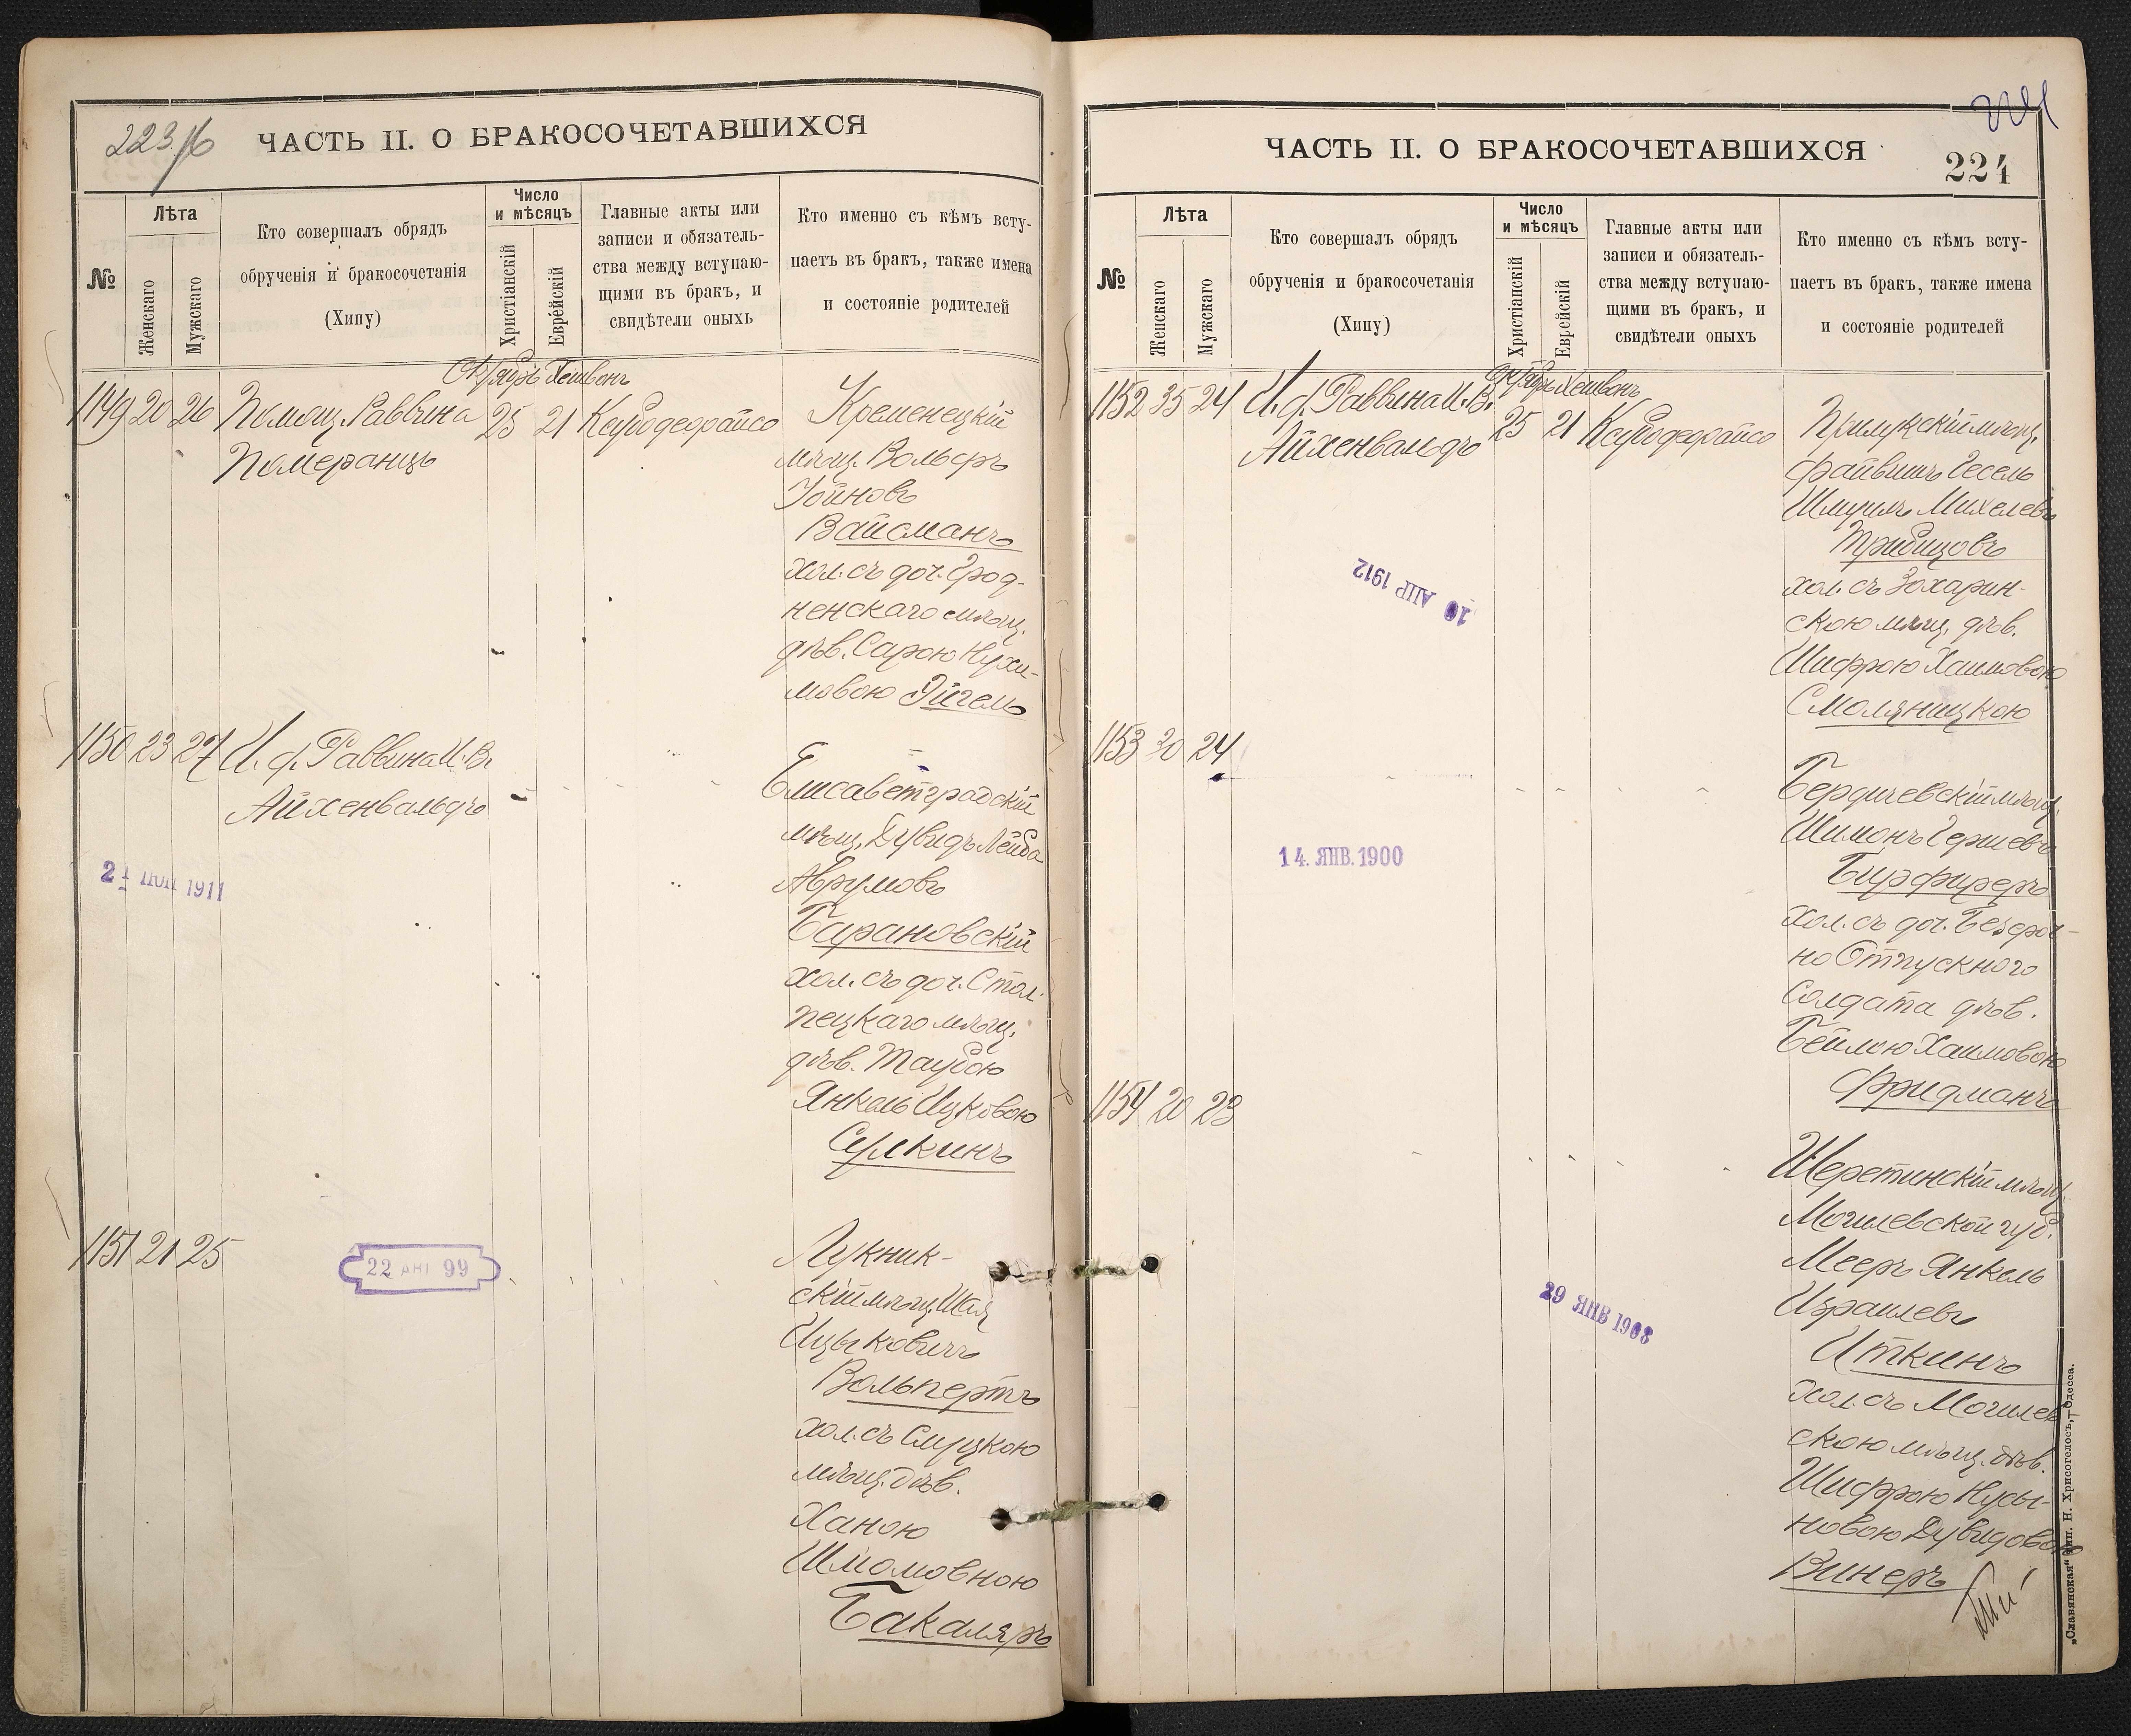 223 об
ЧАСТЬ II. О БРАКОСОЧЕТАВШИХСЯ
№
Лѣта
Женскаго
Мужскаго
Кто совершалъ обрядъ
обрученія и бракосочетанія
(Хипу)
Число
и мѣсяцъ
Христіанскій
Еврейскій
Главные акты или
записи и обязатель-
ства между вступаю-
щими въ бракъ, и
свидѣтели оныхъ
Кто именно съ кѣмъ всту-
паетъ въ бракъ, также имена
и состояніе родителей
Октябрь Хешвонъ
1149 20 26 Помощ. Раввина 25 21
Померанцъ
Кременецкій
мѣщ. Вольфъ
Іойновъ
Вайсманъ
хол. съ доч. Грод-
ненскаго мѣщ.
дѣв. Сарою Нухи-
мовою Эйгель
1150 23 27 И. д. Раввина И. В.
Айхенвальдъ
Елисаветградскій
мѣщ. Дувидъ Лейба
Аврумовъ
Барановскій
хол. съ доч. Стол-
пецкаго мѣщ.
дѣв. Таубою
Янкель Ицковою
Сулкинъ
21 1911
1151 21 25
22 АВГ 99
Лукник-
скій мѣщ. Шая
Ицыковичъ
Вольпертъ
хол. съ Слуцкою
мѣщ. дѣв.
Ханою
Шломовною
Бакаляръ
224
ЧАСТЬ II. О БРАКОСОЧЕТАВШИХСЯ
224
№
Лѣта
Женскаго
Мужскаго
Кто совершалъ обрядъ
обрученія и бракосочетанія
(Хипу)
Число
и мѣсяцъ
Христіанскій
Еврейскій
Главные акты или
записи и обязатель-
ства между вступаю-
щими въ бракъ, и
свидѣтели оныхъ
Кто именно съ кѣмъ всту-
паетъ въ бракъ, также имена
и состояніе родителей
Октябрь Хешвонъ
1152 35 24 И. д. Раввина И. В. 25 21
Айхенвальдъ
Прилукскій мѣщ.
Файвишъ Гесель
Шмуилъ Михелевъ
хол. съ Захарин-
скою мѣщ. дѣв.
Шифрою Хаимовою
Смоляницкою
10 АПР 1912
1153 30 24
14. ЯНВ. 1900
Бердичевскій мѣщ.
Шимонъ Гершевъ
Бирфиреръ
хол. съ доч. Безсроч-
но Отпускного
Солдата дѣв.
Бейлою Хаимовою
Фридманъ
1154 20 23
29 ЯНВ 1908
мѣщ.
Могилевской губ.
Мееръ Янкель
Израилевъ
Иткинъ
хол. съ Могилев
скою мѣщ. дѣв.
Шифрою Нусы-
новою Дувидовою
Винеръ
„Славянская“ тип. Н. Хрисогелосъ, Одесса.